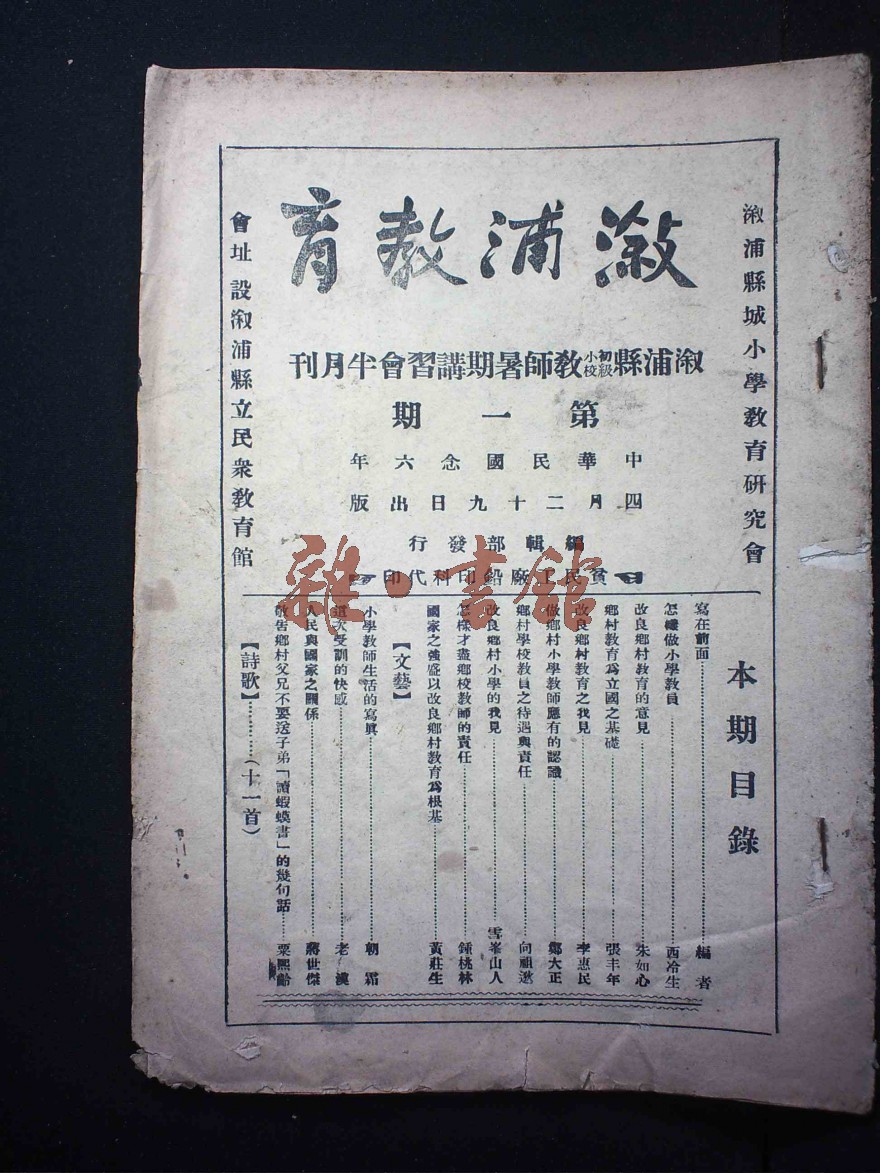 溆浦縣城小學教育研究會
溆浦教育
溆浦縣初級小校教師暑期講習會半月刊
第一期
中華民國念六年
四月二十九日出版
編輯部發行
貧民工廠鉛印科代印
會址設溆浦縣立民衆教育館
本期目錄
寫在前面 編者
怎樣做小學教員 西冷生
改良鄉村教育的意見 朱如心
鄉村教育爲立國之基礎 張丰年
改良鄉村教育之我見 李惠民
做鄉村小學教師應有的認識 鄭大正
鄉村學校教員之待遇與責任 向祖逖
改良鄉村小學的我見 雪峯山人
怎樣才盡鄉校教師的責任 鍾桃林
國家之強盛以改良鄉村教育爲根基 黃莊生
【文藝】
小學教師生活的寫眞 朝霜
這次受訓的快感 老漢
人民與國家之關係 蔣世傑
敬告鄉村父兄不要送子弟「讀蝦蟆書」的幾句話 粟熙齡
【詩歌】(十一首)
雜·書館